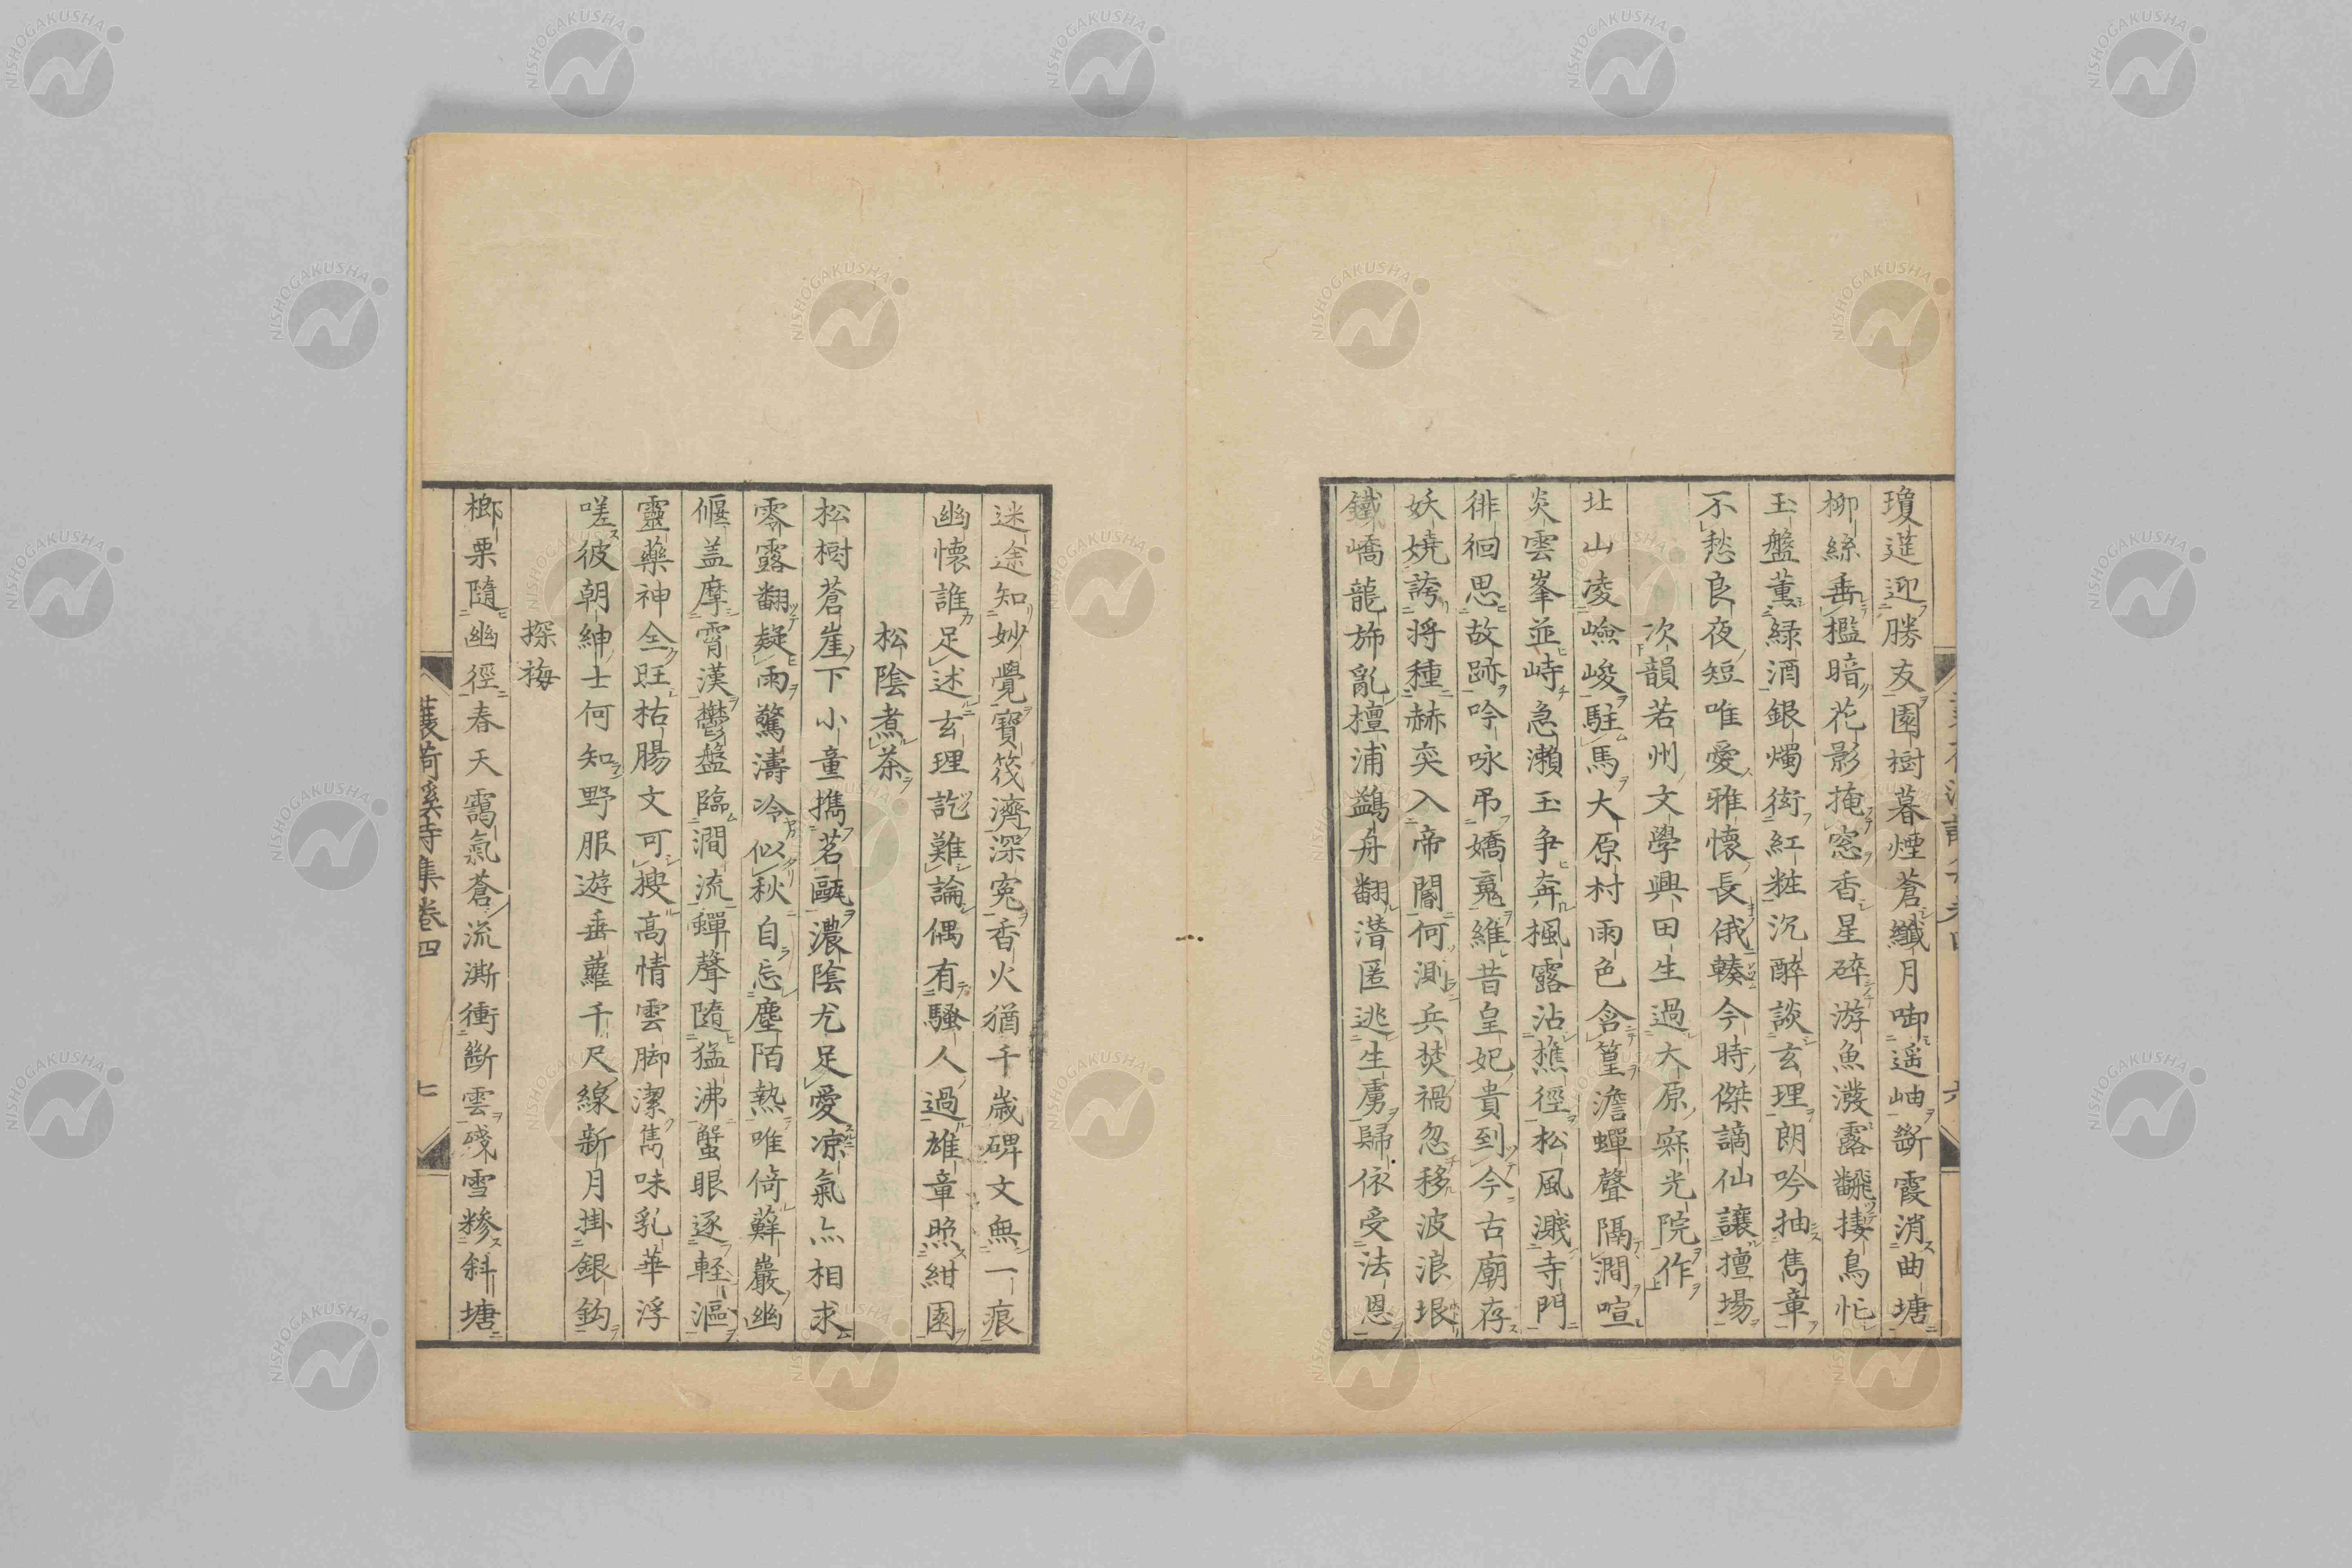 瓊莚迎勝友園樹暮煙蒼纖月啣遥岫斷霞消曲塘
柳絲垂檻暗花影掩窓香星碎游魚潑露飜捿鳥忙
玉盤薫緑酒銀燭衒紅粧沉醉談玄理朗吟抽雋章
不愁良夜短唯愛雅懷長俄轃今時傑謫仙讓擅場
次韻若州文學興田生過大原寂光院作
北山凌嶮峻駐馬大原村雨色含篁澹蟬聲隔澗喧
炎雲峯並峙急瀬玉争奔楓露沾樵徑松風濺寺門
徘徊思故跡吟咏弔嬌䰟維昔皇妃貴到今古廟存
妖嬈誇将種赫奕入帝閽何測兵焚禍忽移波浪垠
鐵嶠龍斾亂檀浦鷁舟翻潜匿逃生虜歸依受法恩
迷途知妙覺寶筏濟深寃香火猶千歳碑文無一痕
幽懷誰足述玄理訖難論偶有騷人過雄章照紺園
松陰煮茶
松樹蒼崖下小童携茗甌濃陰尤足愛凉氣亦相求
零露翻疑雨驚濤冷似秋自忘塵陌熱唯倚蘚巖幽
偃盖摩霄漢鬱盤臨澗流蟬聲隨猛沸蟹眼逐軽漚
靈藥神仝旺枯腸文可捜高情雲脚潔雋味乳華浮
嗟彼朝紳士何知野服遊垂蘿千尺線新月掛銀鈎
探梅
榔栗隨幽徑春天靄氣蒼流澌衝斷雲殘雪糝斜塘
蘘荷溪詩集卷四
七
NISHOGAKUSHA